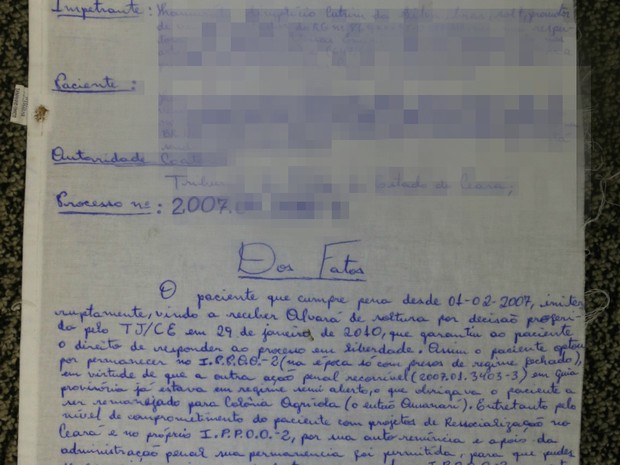 Impetrante:
Paciente:
Autoridade
Estado do Ceará;
Processo nº: 2007.
Dos Fatos
O paciente que cumpre pena desde 01-02-2007, ininter
ruptamente, vindo a receber Alvará de soltura por decisão proferi
da pelo TJ/CE em 29 de janeiro de 2010, que garantiu ao paciente
o direito de responder ao processo em liberdade. Assim o paciente optou
por permanecer no I.P.P.O.O.-2 (na época só com presos de regime fechado),
em virtude de que a outra ação penal recorrível (2007.01.3403-3) em guia
provisória já estava em regime semi aberto, o que obrigava o paciente a
ser remanejado para Colônia Agrícola (o então Amanari). Entretanto pelo
nível de comprometimento do paciente com projetos de Ressocialização no
Ceará e no próprio I.P.P.O.O.-2, por sua auto renúncia e apoio da
administração penal sua permanência foi permitida, para que pudes